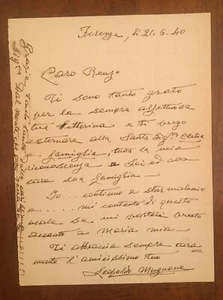 Firenze, li 21. 5. 40
Caro Renzo
Ti sono tanto grato
per la sempre affettuosa
tua letterina e ti prego
esternare alla Santa Sig.ra
e famiglia, tutta la mia
riconoscenza a Lei ed
cara sua famiglia.
Io... continuo a star malaccio
e..... mi contento di questo
male se mi portasse
accanto a Maria mia.
Ti abbraccia sempre cara
mente l'amicissimo tuo
Leopoldo Mugnone
Grazie tanto